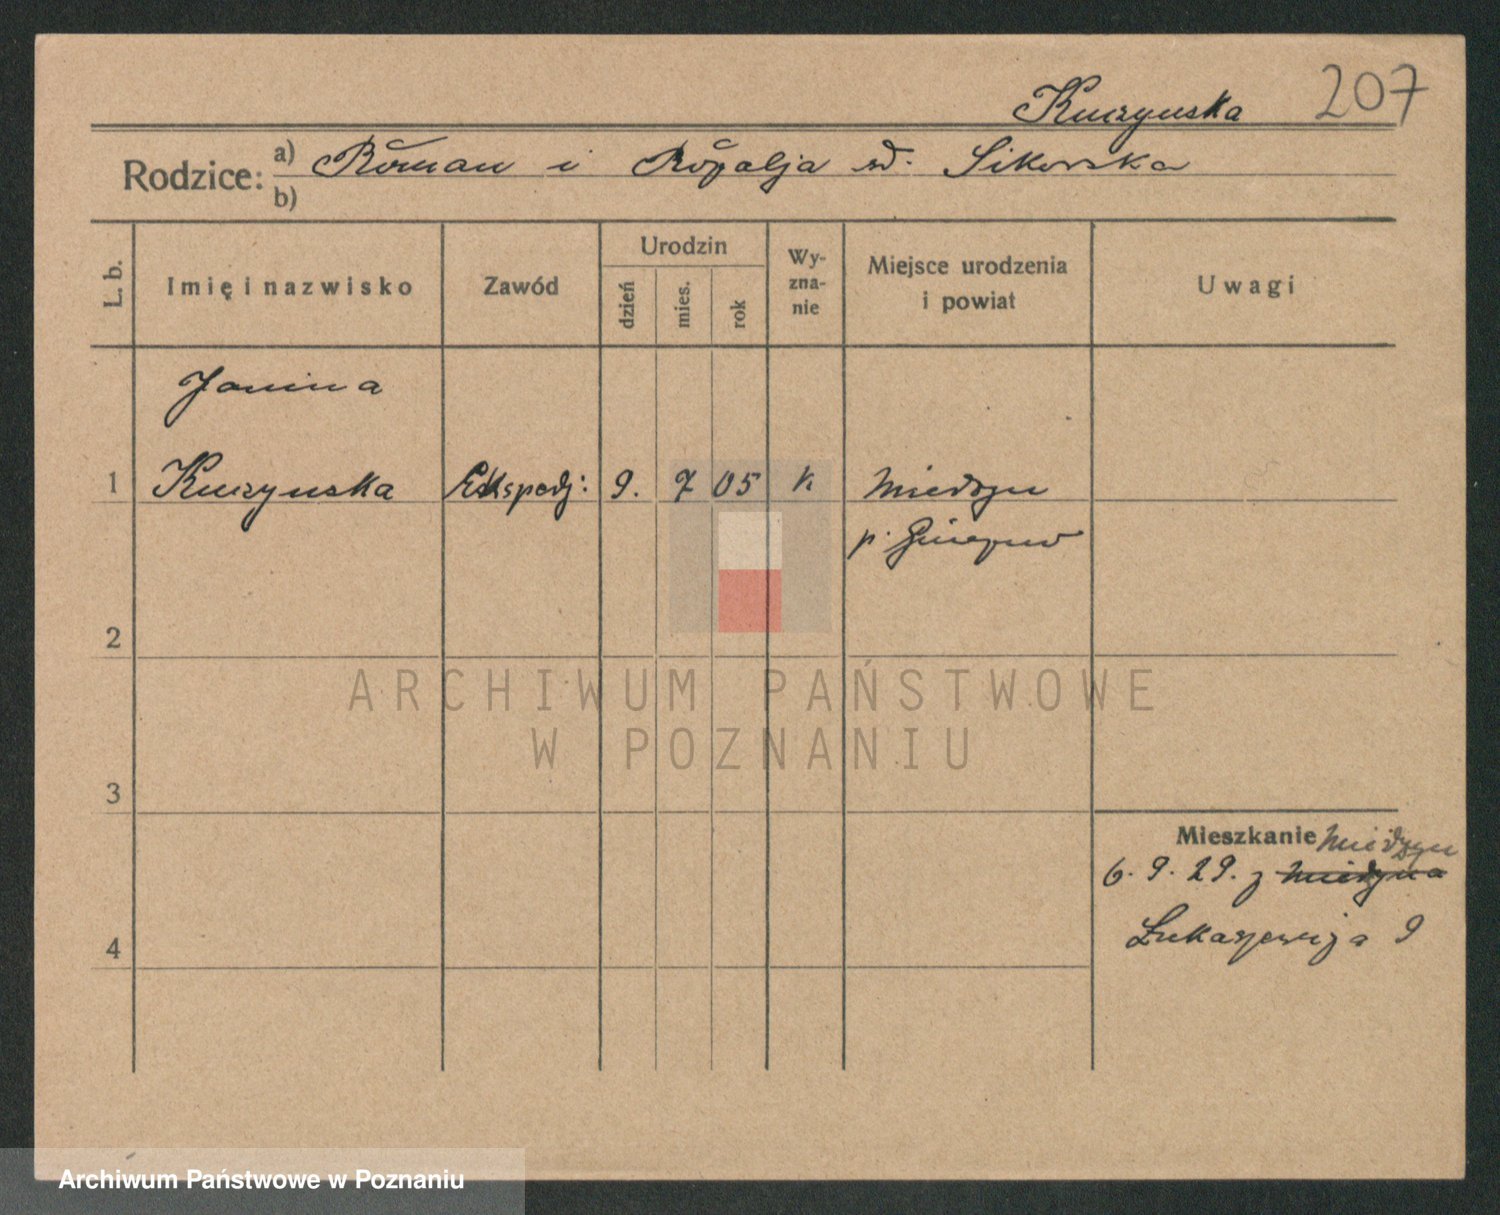 Kuczynska 207
Rodzice: a) Roman i Rozalja Sikorska
b)
L. b. Imię i nazwisko Zawód Urodzin dzień mies. rok Wyzna-nie Miejsce urodzenia i powiat Uwagi
Janina
1 Kuczynska Ekspedj: 9. 7 05 k Miedzyn
p.
2
ARCHIWUM PAŃSTWOWE
W POZNANIU
3
Mieszkanie Miedzyn
6. 9. 29. z
4 Łukaszewicza 9
Archiwum Państwowe w Poznaniu